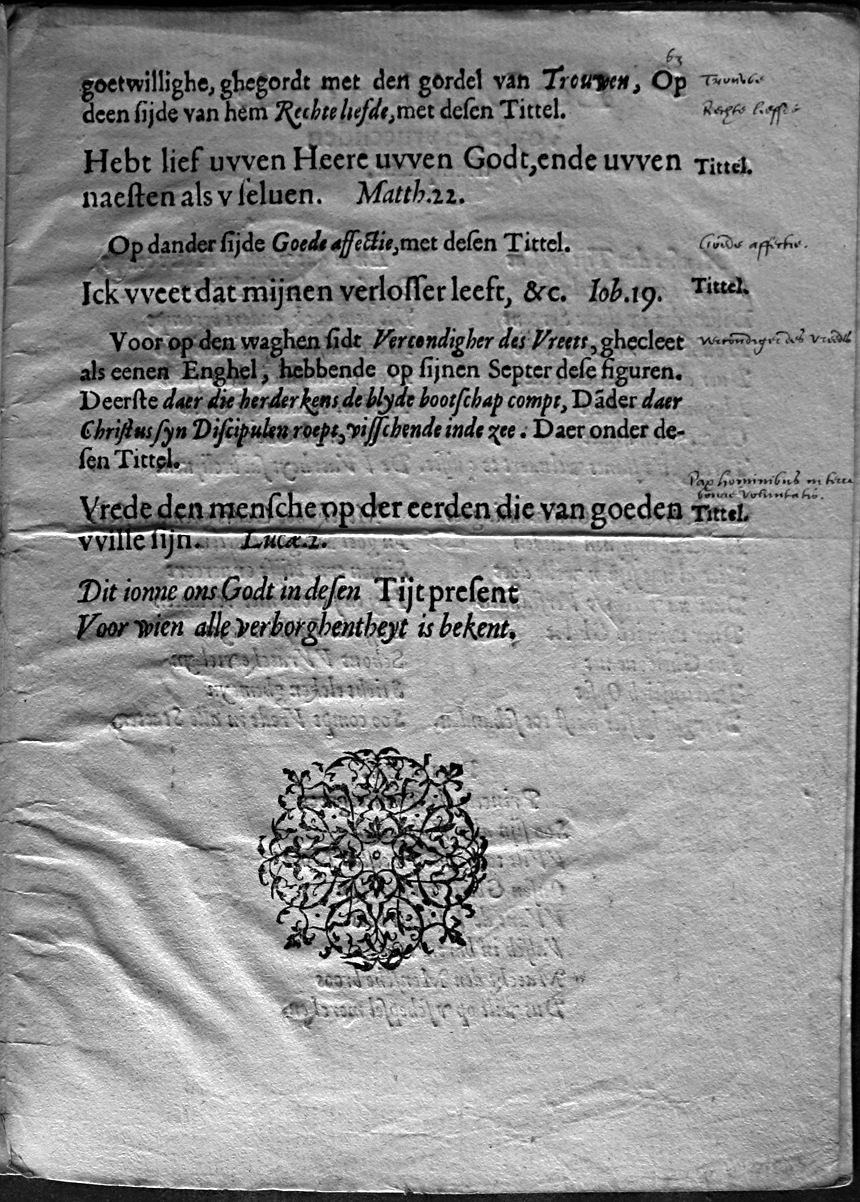 63
goetwillighe, ghegordt met den gordel van Trouwen, Op
deen ſijde van hem Rechte liefde, met deſen Tittel.
Hebt lief uvven Heere uvven Godt, ende uvven Tittel.
naeſten als v ſeluen. Matth.22.
Op dander ſijde Goede affectie, met deſen Tittel. Goede affectie.
Ick vveet dat mijnen verloſſer leeft, &c. Iob.19. Tittel.
Voor op den waghen ſidt Vercondigher des Vreets, ghecleet
als eenen Enghel, hebbende op ſijnen Septer deſe figuren.
Deerſte daer die herderkens de blyde bootſchap compt, Dāder daer
Chriſtus ſyn Diſcipulen roept, viſſchende inde zee. Daer onder de-
ſen Tittel.
Pax hominibus in terra
bonae voluntatis.
Vrede den menſche op der eerden die van goeden Tittel.
vville ſijn. Lucæ.2.
Dit ionne ons Godt in deſen Tijt preſent
Voor wien alle verborghentheyt is bekent.